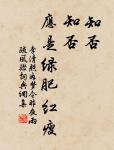 知否
知否
應是綠肥紅瘦
李清照如夢令昨夜雨
疏風驟詞典集